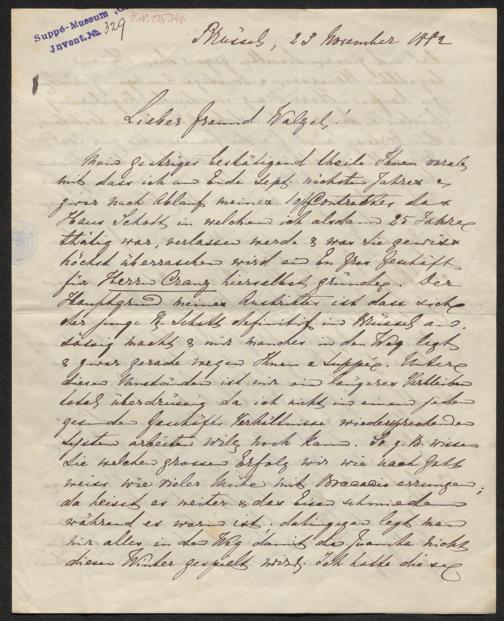 Suppé-Museum
Invent. No. 329
Brüssel, 23 November 1882
Lieber Freund Walzel!
Mein gestriges bestätigend theile Ihnen vorab
mit dass ich am Ende Sept. nächsten Jahres &
zwar nach Ablauf meines Contractes das
Haus Schott in welchem ich alsdann 25 Jahre
thätig war, verlassen werde & was Sie gewiss
höchst überraschen wird ein En Gros Geschäft
für Herrn Cranz hierselbst gründe. Der
Hauptgrund meines Austrittes ist dass sich
der junge P. Schott definitif in Brüssel an-
sässig macht & mir manches in den Weg legt
& zwar gerade wegen Ihnen & Suppé. Unter
diesen Umständen ist mir ein längeres Verbleiben
total überdrüssig da ich nicht in einem jeden
gesunden Geschäfts Verhältnisse widersprechenden
System arbeiten will noch kann. So z. B. wissen
Sie welchen grossen Erfolg wir wie nach Gott
weiss wie vieler Mühe mit Boccaccio errungen;
da heisst es weiter & das Eisen schmieden
während es warm ist. dahingegen legt man
mir alles in den Weg damit die Juanita nicht
diesen Winter gespielt wird. Ich hatte dieses